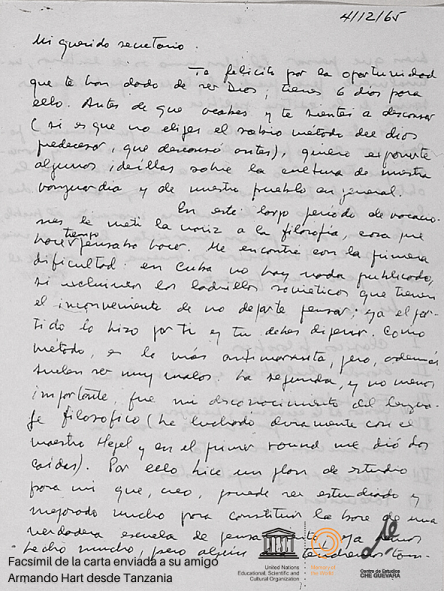 4/12/65
Mi querido secretario.
Te felicito por la oportunidad
que te han dado de ser Dios; tienes 6 días para
ello. Antes de que acabes y te sientes a descansar
(si es que no eliges el sabio método del dios
predecesor, que descansó antes), quiero exponerte
algunas ideíllas sobre la cultura de nuestra
vanguardia y de nuestro pueblo en general.
En este largo período de vacacio-
nes le metí la nariz a la filosofía, cosa que
hace tiempo pensaba hacer. Me encontré con la primera
dificultad: en Cuba no hay nada publicado,
si excluimos los ladrillos soviéticos que tienen
el inconveniente de no dejarte pensar; ya el par-
tido lo hizo por ti y tu debes digerir. Como
método, es lo más antimarxista, pero, además
suelen ser muy malos. La segunda, y no menos
importante, fue mi desconocimiento del lengua-
je filosófico (he luchado duramente con el
maestro Hegel y en el primer round me dió dos
caídas). Por ello hice un plan de estudio
para mí que, creo, puede ser estudiado y
mejorado mucho para constituir la base de una
verdadera escuela de pensamiento; ya hemos
hecho mucho, pero algún
Facsímil de la carta enviada a su amigo
Armando Hart desde Tanzania
UNESCO
United Nations
Educational, Scientific and
Cultural Organization
Memory
of the World
Centro de Estudios
CHE GUEVARA